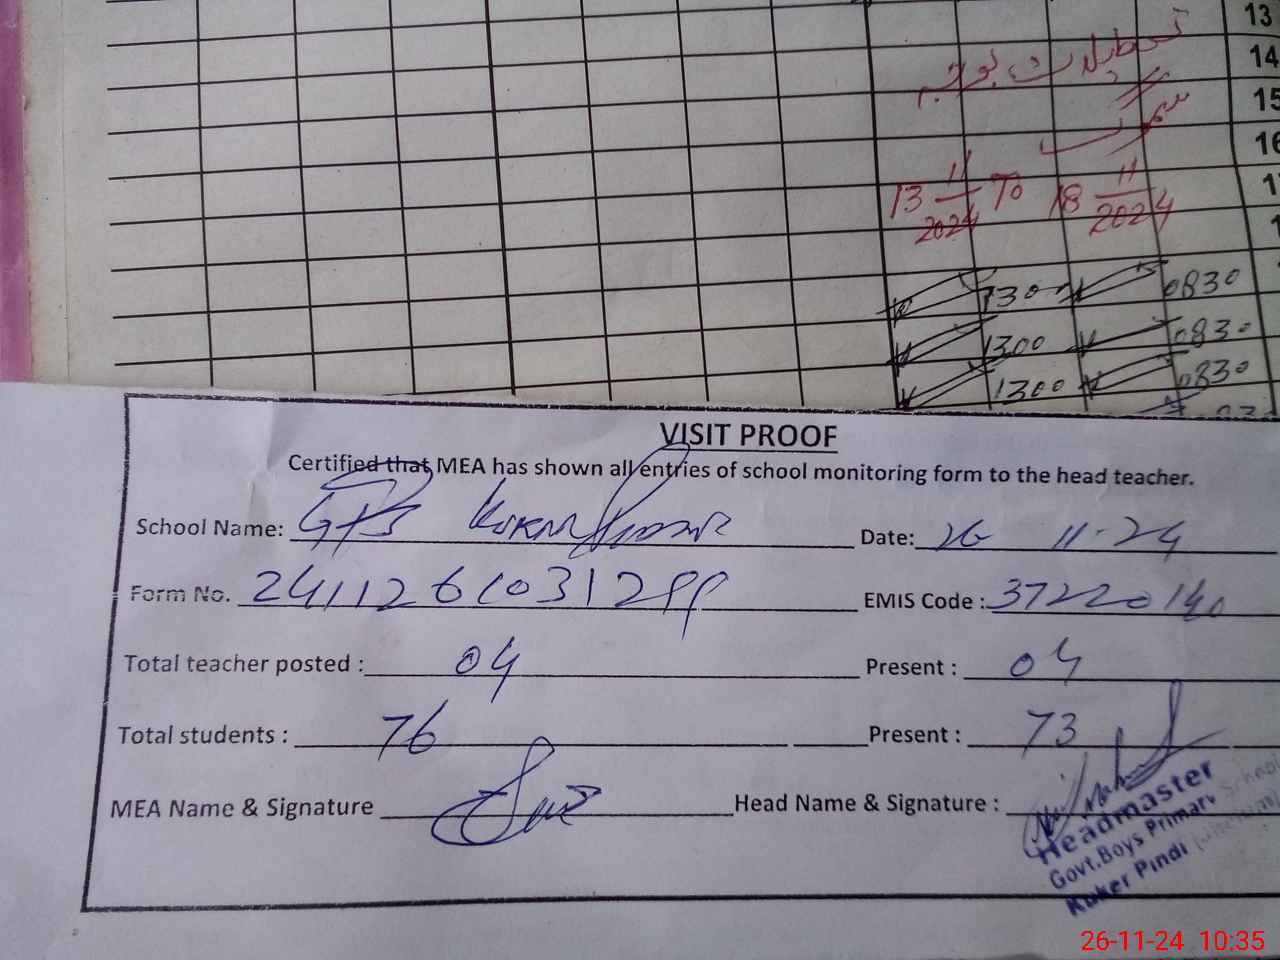 13
14
15
16
تعطیلات بوجہ
سموگ
13 11/2024 To 18 11/2024
1300 0830
1300 0830
1300 0830
VISIT PROOF
Certified that MEA has shown all entries of school monitoring form to the head teacher.
School Name: GPS Date: 26 11-24
Form No. EMIS Code : 37220140
Total teacher posted : 04 Present : 04
Total students : 76 Present : 73
MEA Name & Signature Head Name & Signature :
Headmaster
Govt. Boys Primary School
Koker Pindi
26-11-24 10:35